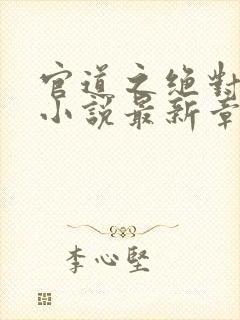 官道之绝對
小說最新章
李心堅